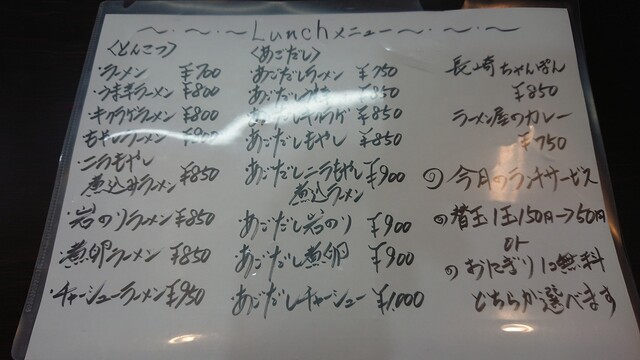 ～・～・～・～Lunchメニュー～・～・～・～
〈とんこつ〉
・ラーメン ¥700
・うま辛ラーメン ¥800
・キクラゲラーメン ¥800
・もやしラーメン ¥800
・ニラもやし
煮込みラーメン ¥850
・岩のりラーメン ¥850
・煮卵ラーメン ¥850
・チャーシューラーメン ¥950
〈あごだし〉
・あごだしラーメン ¥750
・あごだし ¥850
・あごだしキクラゲ ¥850
・あごだしもやし ¥850
・あごだしニラもやし ¥900
煮込ラーメン
・あごだし岩のり ¥900
・あごだし煮卵 ¥900
・あごだしチャーシュー ¥1,000
・長崎ちゃんぽん
¥850
ラーメン屋のカレー
¥750
今月のランチサービス
替玉1玉150円→50円
or
おにぎり1コ無料
どちらか選べます